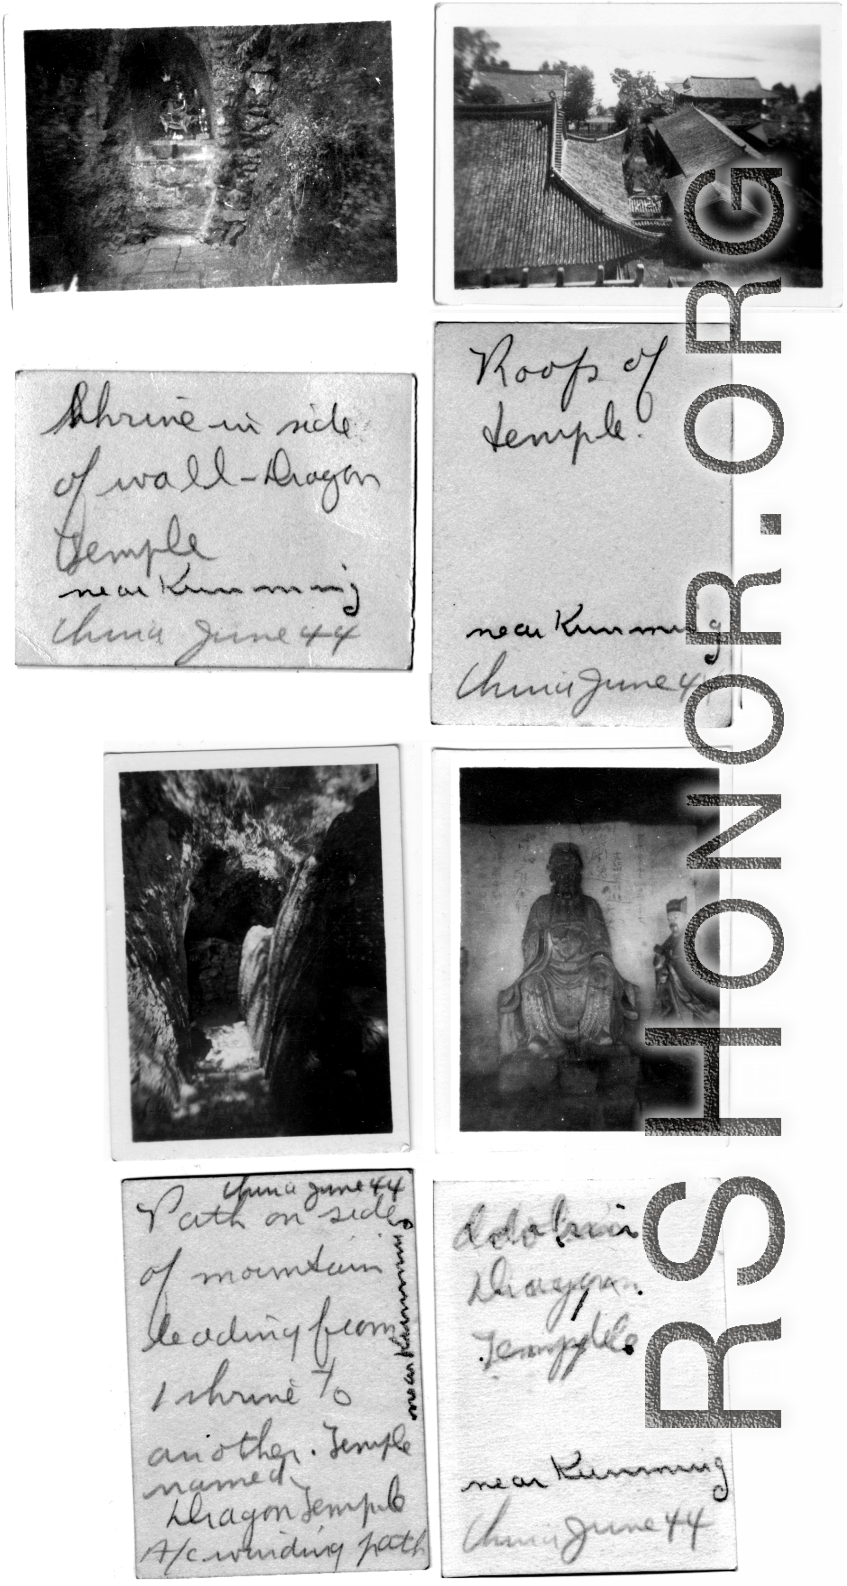 Shrine in side
of wall - Dragon
Temple
near Kunming
China June 44
Roofs of
temple.
near Kunming
China June 44
China June 44
Path on side
of mountain
leading from
1 shrine to
another. Temple
named
Dragon Temple
A/c winding path
near Kunming
Idol in
Dragon
Temple
near Kunming
China June 44
RS HONOR.ORG